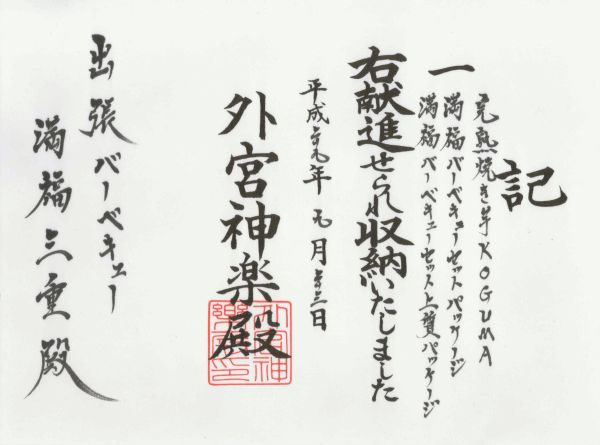 記
一
完熟焼き芋KOGUMA
満福バーベキューセットパッケージ
満福バーベキューセット上質パッケージ
右献進せられ収納いたしました
平成 年 月 日
外宮神楽殿
出張バーベキュー
満福三重殿